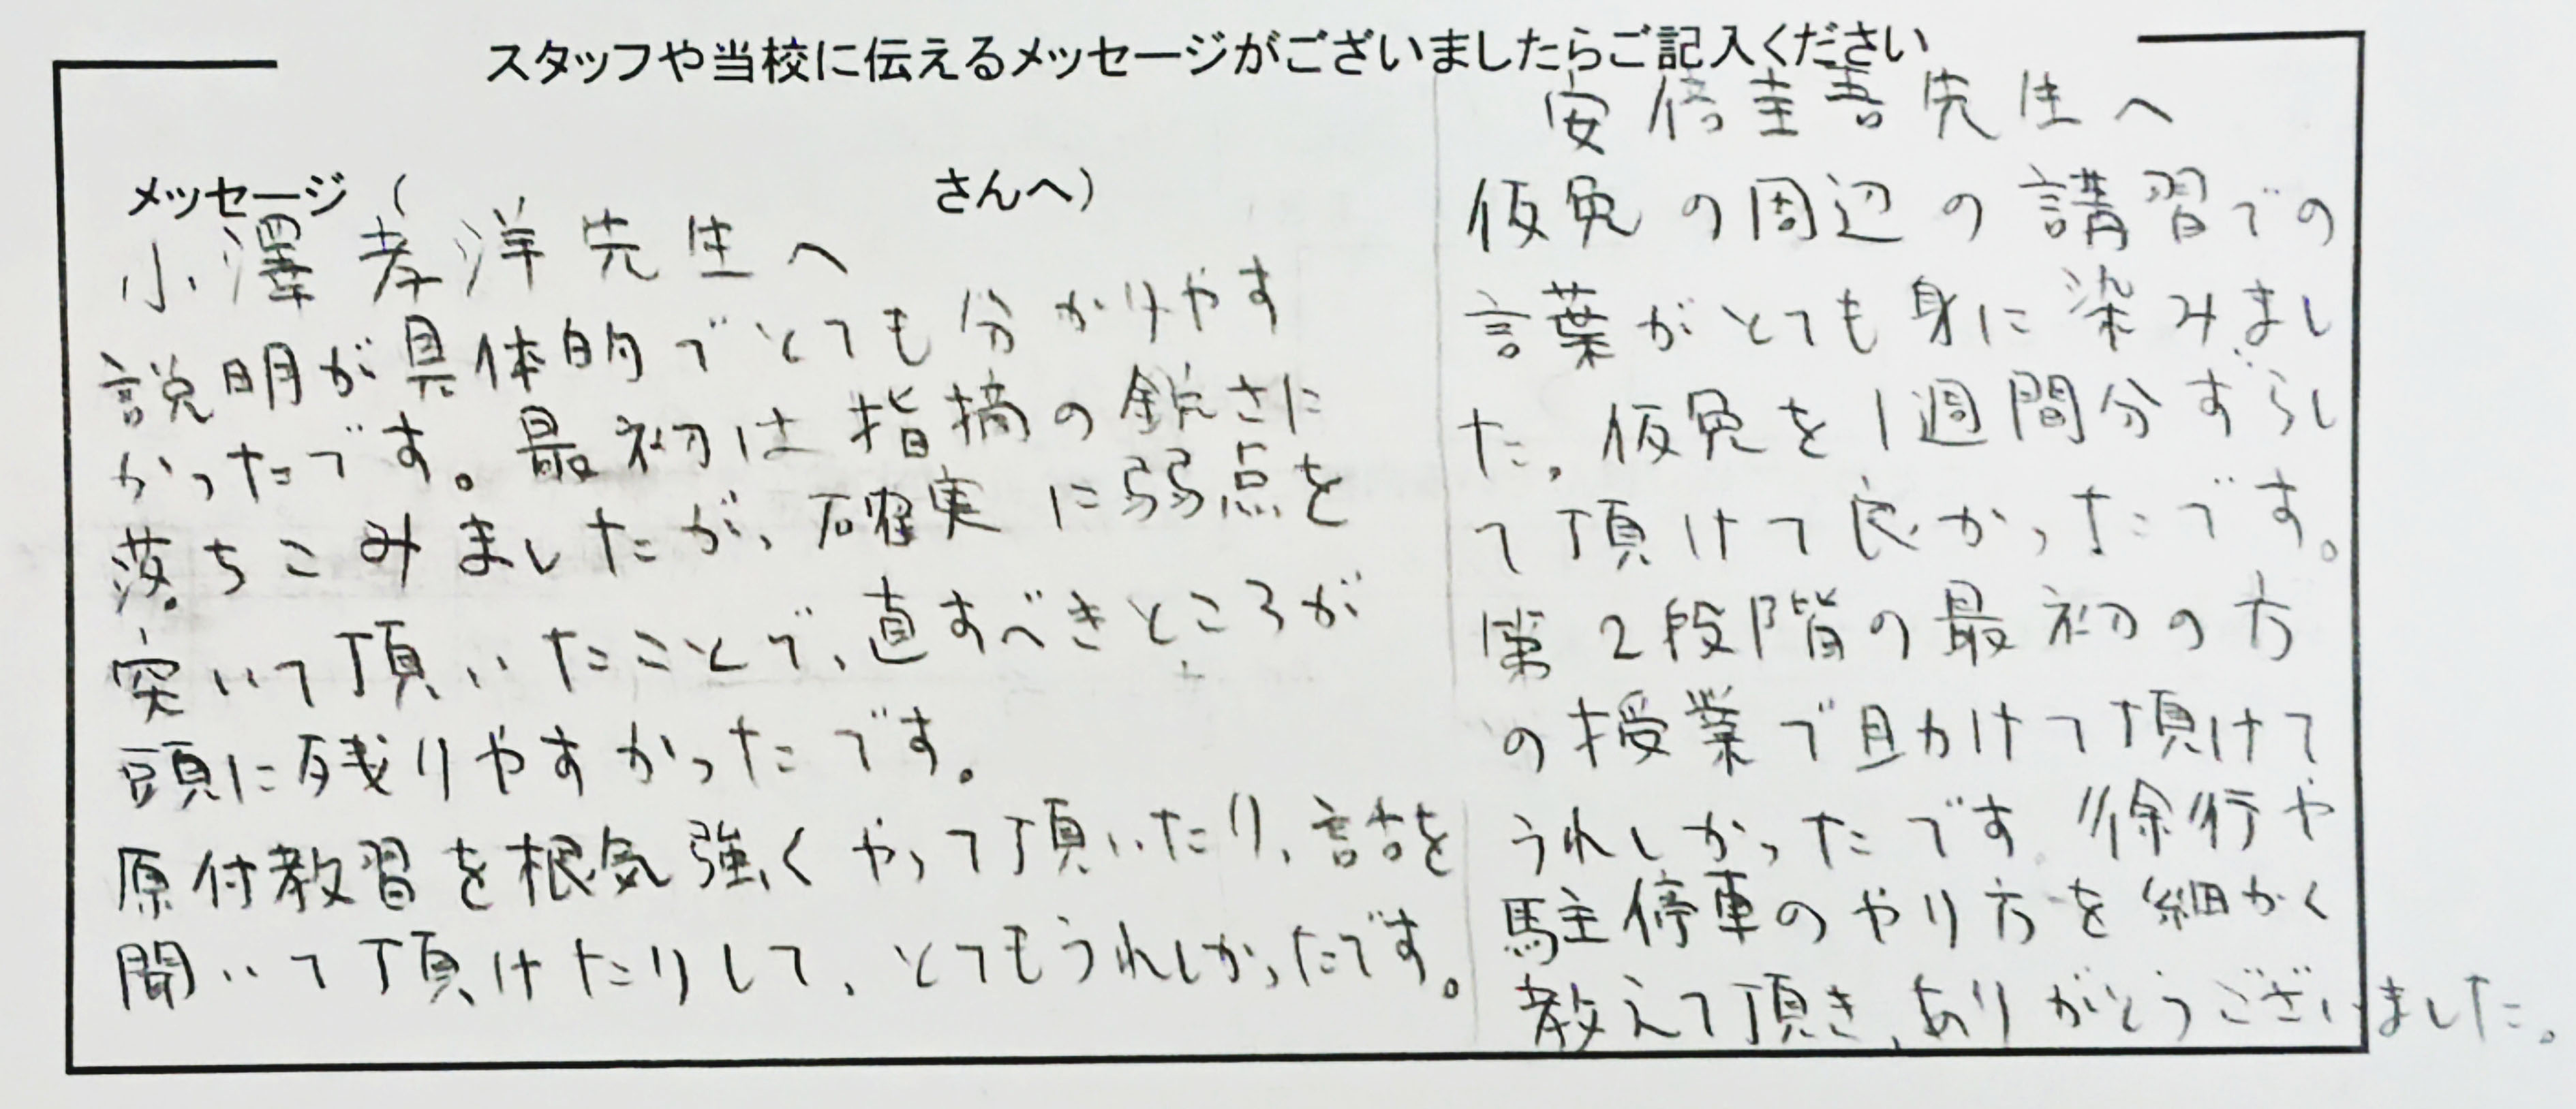 スタッフや当校に伝えるメッセージがございましたらご記入ください
メッセージ（　　　　　　　　さんへ）
小澤孝洋先生へ
説明が具体的でとても分かりやす
かったです。最初は指摘の鋭さに
落ちこみましたが、確実に弱点を
突いて頂いたことで、直すべきところが
頭に残りやすかったです。
原付教習を根気強くやって頂いたり、話を
聞いて頂けたりして、とてもうれしかったです。
安倍圭吾先生へ
仮免の周辺の講習での
言葉がとても身に染みまし
た。仮免を1週間分ずらし
て頂けて良かったです。
第2段階の最初の方
の授業で助けて頂けて
うれしかったです。徐行や
駐停車のやり方を細かく
教えて頂き、ありがとうございました。